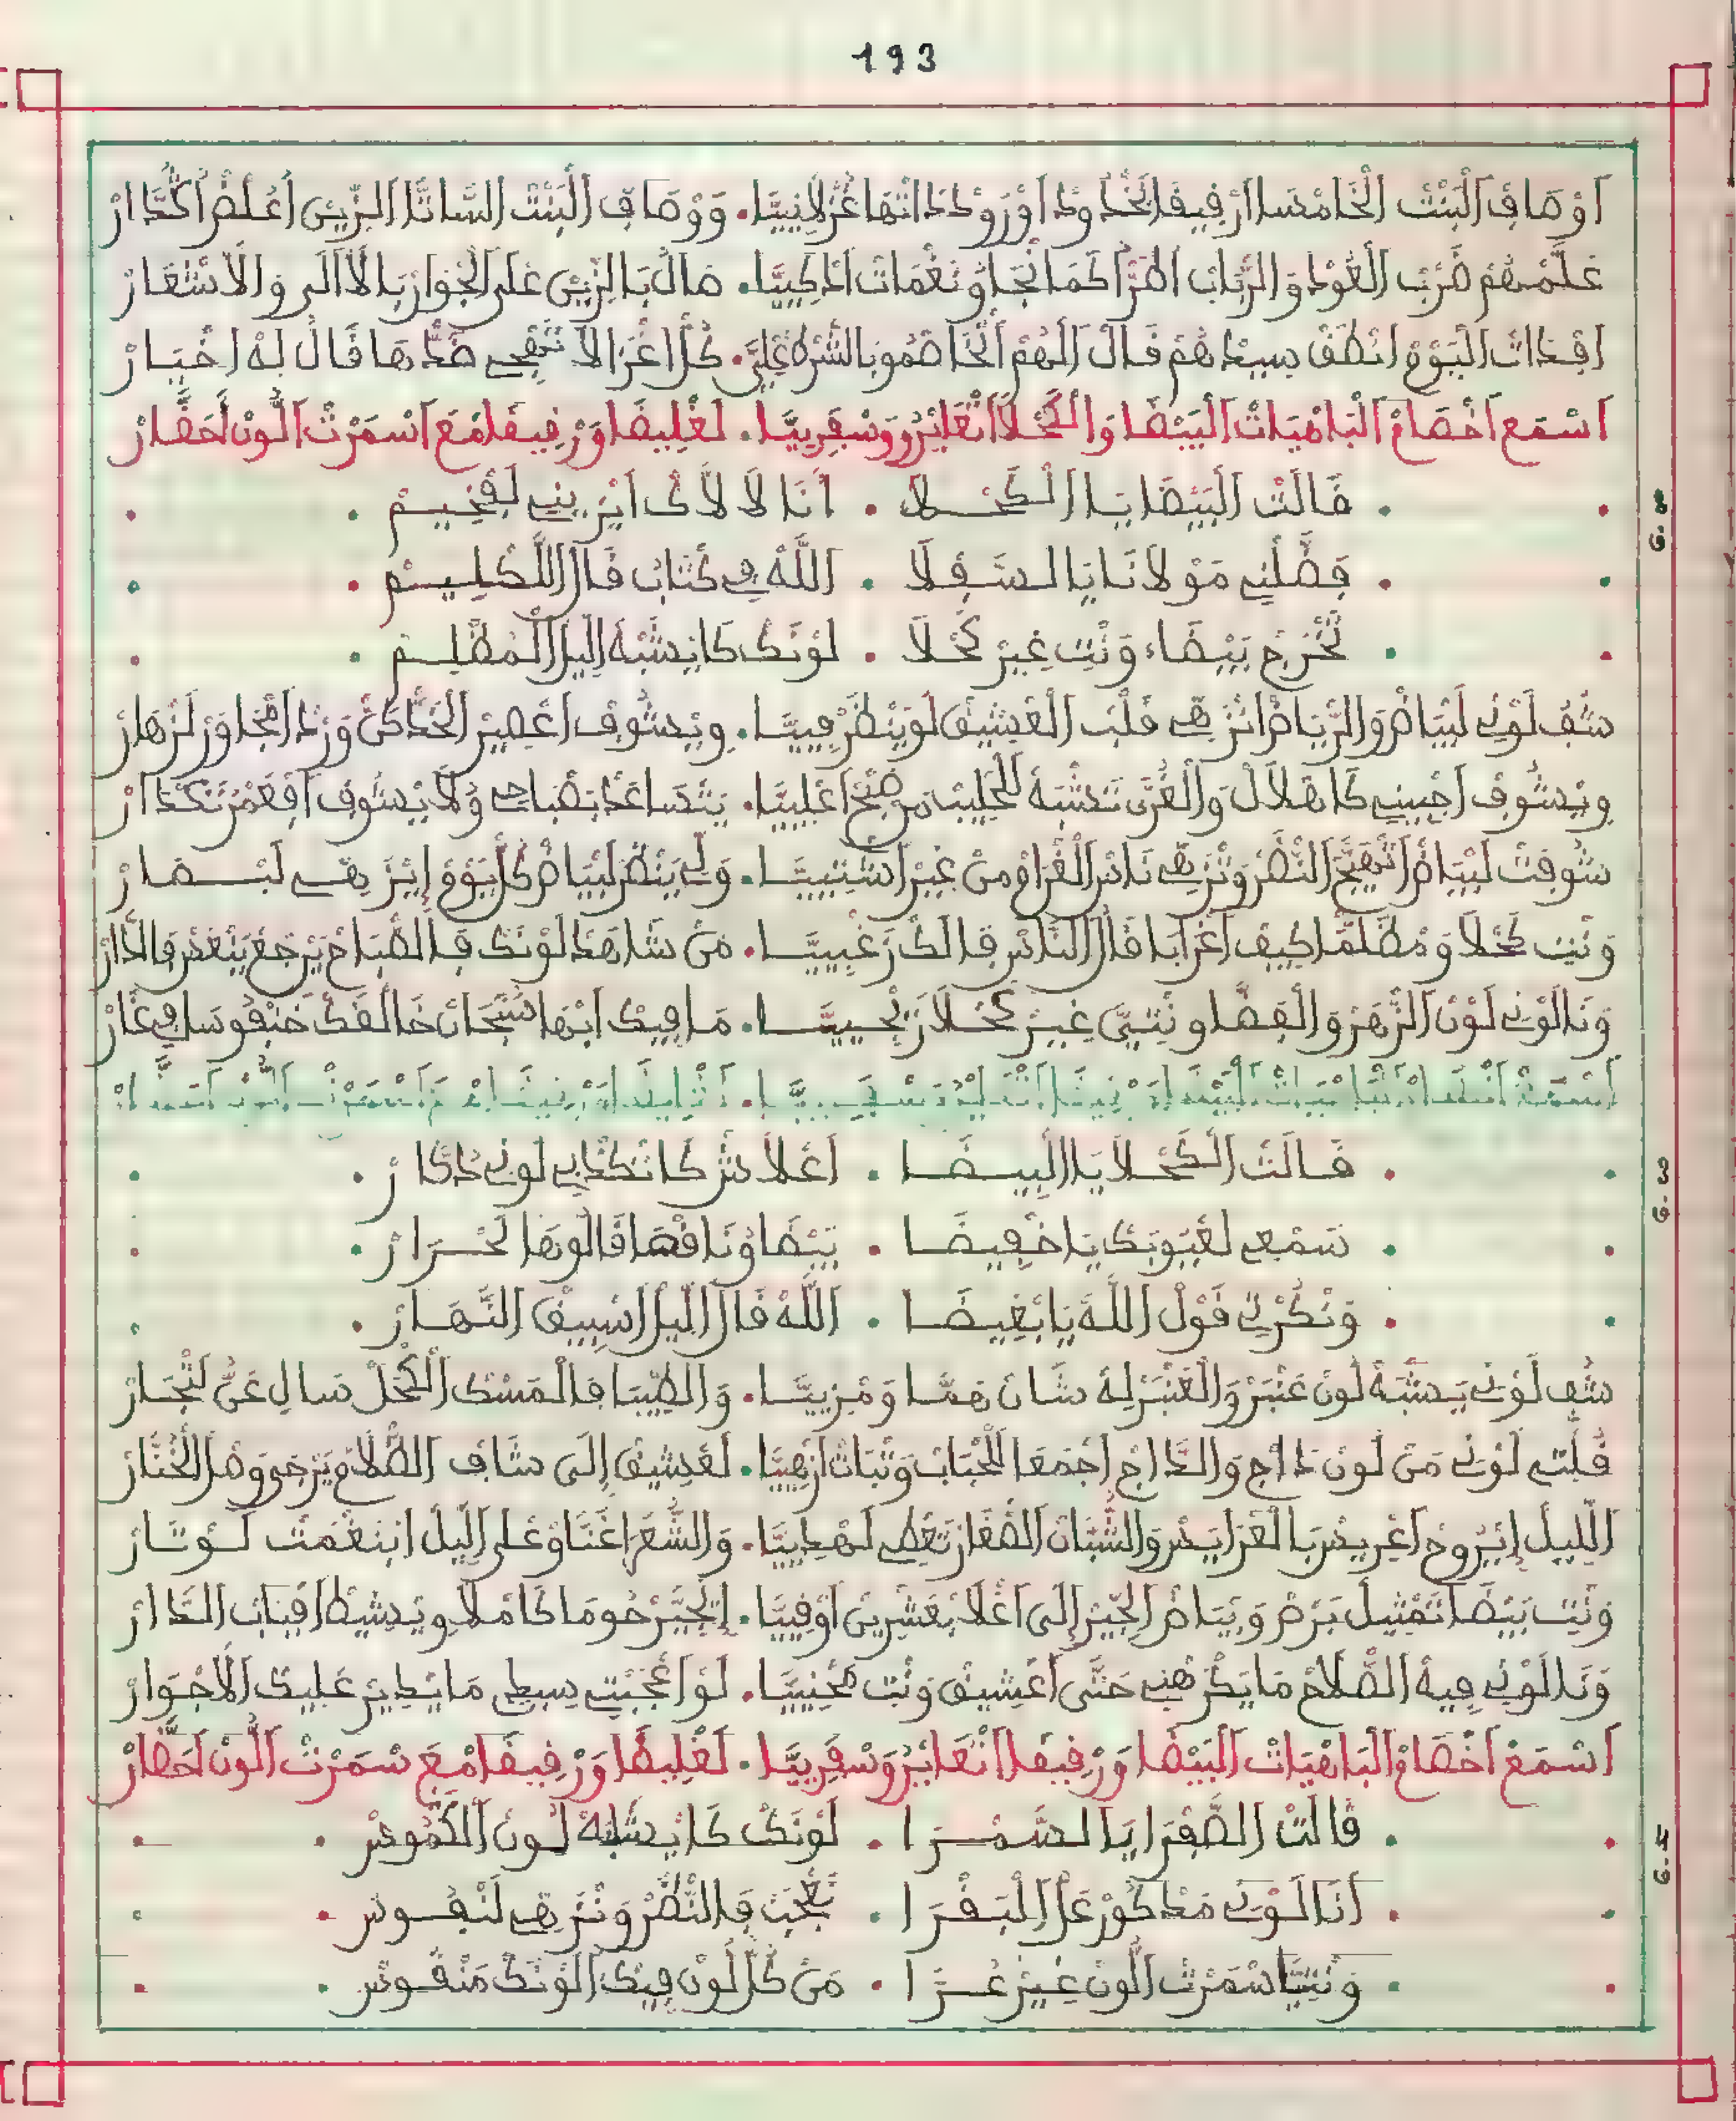 193
اَوْصَافْ اَلْبَنْتْ اَلْخَامْسَا اَرْفِيقَا لَخْدُودْ اَوْرَودْ دَاتْهَا غُزْلَانِيَّا. وَوْصَافْ اَلْبَنْتْ السَّاتَّا اَلزِّينْ اَعْلَمْ اَكْدَارْ
عَلَّمْهُمْ ضَرْبْ اَلْعُودْ وَالرْبَابْ اَطْرَا كَمَا نْجَاوْ نَغْمَاتْ اَدْكِيَّا. صَالْ بَالزِّينْ عْلَى لَجْوَارْ بَالْأَالَى وَالْأَشْعَارْ
اَفْدَاتْ اَلْيَوْمْ اَنْطَقْ سِيدْهُمْ قَالْ اَلْهُمْ اَتْخَاصْمُو بَالشَّرْهْ عْلِيَّ. كُلّْ اَغْزَالَا تَهْجِي ضَدْهَا قَالْ لَهْ اَخْيَارْ
اَسْمَعْ اَخْصَامْ اَلْبَاهْيَاتْ اَلْبَيْضَا وَالْكَحْلَا اَتْعَايْرُو وَسْقَرِيَّا. لَغْلِيضَا وَرْفِيقَا مْعَ اَسْمَرْتْ اَللُّونْ اَحْضَارْ
G.2
. قَالَتْ اَلْبَيْضَا يَا اَلْكَحْلَا . اَنَا لَالَاكْ اَيْزِينِي لَفْخِيمْ .
. فَضَّلْنِي مَوْلَانَا يَا السَّفْلَا . اَللَّهْ فِي كْتَابْ قَالْ اَلَّكْلِيمْ .
. تُخْرُجْ بَيْضَاء وَنْتِ غِيرْ كَحْلَا . لَوْنَكْ كَايْشْبَهْ اَلِّيلْ اَلْمُظْلِمْ .
شُفْ لَوْنِي لَبْيَاضْ وَالرْيَاضْ اَتْزَهِي قَلْبْ اَلْعْشِيقْ لَوْيَنْظَرْ فِييَّا. وِيشُوفْ اَعْصِيرْ اَلْخَدّْ كَنّْ وَرْدْ اَفْجَاوَرْ لَزْهَارْ
وِيشُوفْ اَجْبِينِي كَاهْلَالْ وَالْغُرَّى تَشْبَهْ لَلْحْلِيبْ مَنْ صْحْ اَعْلِييَّا. يَتْصَاعَدْ بَصْبَاحِي وُلَا يْشُوفْ اَفْعَمْرْ تَنْكْدَارْ
شُوفْتْ لَبْيَاضْ اَتْهَيَّجْ اَلنْظَرْ وَتْزَهِي نَاسْ اَلْغْرَامْ مَنْ غِيرْ اَشْتِييَّا. وَلِّي يَنْظَرْ لَبْيَاضْ كُلّْ يَوْمْ إِيْزَهِي لَبْصَارْ
وَنْتِ كَحْلَا وَمْظَلْمَا كِيفْ اَغْرَابَا قَالْ اَلنَّاسْ قَالَكْ رَغْبِييَّا. مَنْ شَاهَدْ لَوْنَكْ فَالصْبَاحْ يَرْجَعْ يَنْعَسْ فَالدَّارْ
وَنَا لَوْنِي لَوْنْ اَلزْهَرْ وَالْفَضَّا وُنْتِيَّ غِيرْ كَحْلَا زَنْجِييَّا. مَا فِيكْ اَبْهَا سُبْحَانْ خَالْقَكْ خَنْفُوسَا فِي غَارْ
G.3
. قَالَتْ اَلْكَحْلَا يَا اَلْبِيضَا . اَعْلَاشْ كَاتَكْدَبِي لَونِي دَكَّارْ .
. سَمْعِي لَعْيُوبَكْ يَا خْفِيضَا . بَيْضَا وُنَاقْصَا قَالُوهَا لَحْرَارْ .
. وَنْكَرْتِي قَوْلْ اَللَّهْ يَا بْغِيضَا . اَللَّهْ قَالْ اَلِّيلْ اَسْبِيقْ اَلنَّهَارْ .
شُفْ لَوْنِي يَشْبَهْ لَونْ عَنْبَرْ وَالْعَنْبَرْ لِهْ شَانْ هَمَّا وَمْزِييَّا. وَالطِّيبَا فَالْمَسْكْ اَلْكْحَلْ سَالِ عَنُّ لَتْجَارْ
قُلْتِي لَوْنِي مَنْ لَونْ دَاجْ وَالدَّاجْ اَجْمَعْ اَلْلَحْبَابْ وَتْبَاتْ اَزْهِيَّا. لَعْشِيقْ إِلَى شَافْ اَلظْلَامْ يَرْجَى وَصْلْ اَلْخَنَّارْ
اَلْلِيلْ إِيْرُوحْ اَعْرِيسْ بَالْعَرَايَسْ وَالشُّبَّانْ اَلصْغَارْ تَعْطِي لَهْدِييَّا. وَالشْمَعْ اَغْنَاوْ عْلَى اَلِّيلْ اَبْنَغْمَتْ لَوْتَارْ
وَنْتِ بَيْضَا تَمْثِيلْ بَرْصْ وَبْيَاضْ اَلْجِيرْ إِلَى اَغْلَا بْعَشْرِينْ اَوْقِيَّا. إِتْجَيَّرْ حُومَا كَامْلَا وِيشِيطْ اَفْبَابْ اَلدَّارْ
وَنَا لَوْنِي فِيهْ اَلظْلَامْ مَا يَكْرَهْنِي حَتَّى اَعْشِيقْ وَنْتِ مَحْنِييَّا. لَوْ اَعْجَبْتِي سِيطِي مَا يْطِيرْ عْلِيكْ اَلْأَجْوَارْ
اَسْمَعْ اَخْصَامْ اَلْبَاهْيَاتْ اَلْبَيْضَا وَرْفِيقَا اَتْعَايْرُو وَسْقَرِيَّا. لَغْلِيظَا وَرْفِيقَا مْعَ سْمَرْتْ اَللُّونْ اَحْضَارْ
G.4
. قَالَتْ اَلصَّفْرَا يَا السَّمْرَا . لَوْنَكْ كَايْشْبَهْ لَونْ اَلْكَمُّوسْ .
. اَنَا لَوْنِي مَدْكُورْ عَلْ اَلْبَقْرَا . تَعْجَبْ فَالنْظَرْ وَتْزَهِي لَنْفُوسْ .
. وَنْتِيَّا سْمَرْتْ اَللُّونْ غِيرْ غُرَّا . مَنْ كُلّْ لَونْ فِيكْ اَلَوْنَكْ مَنْقُوسْ .